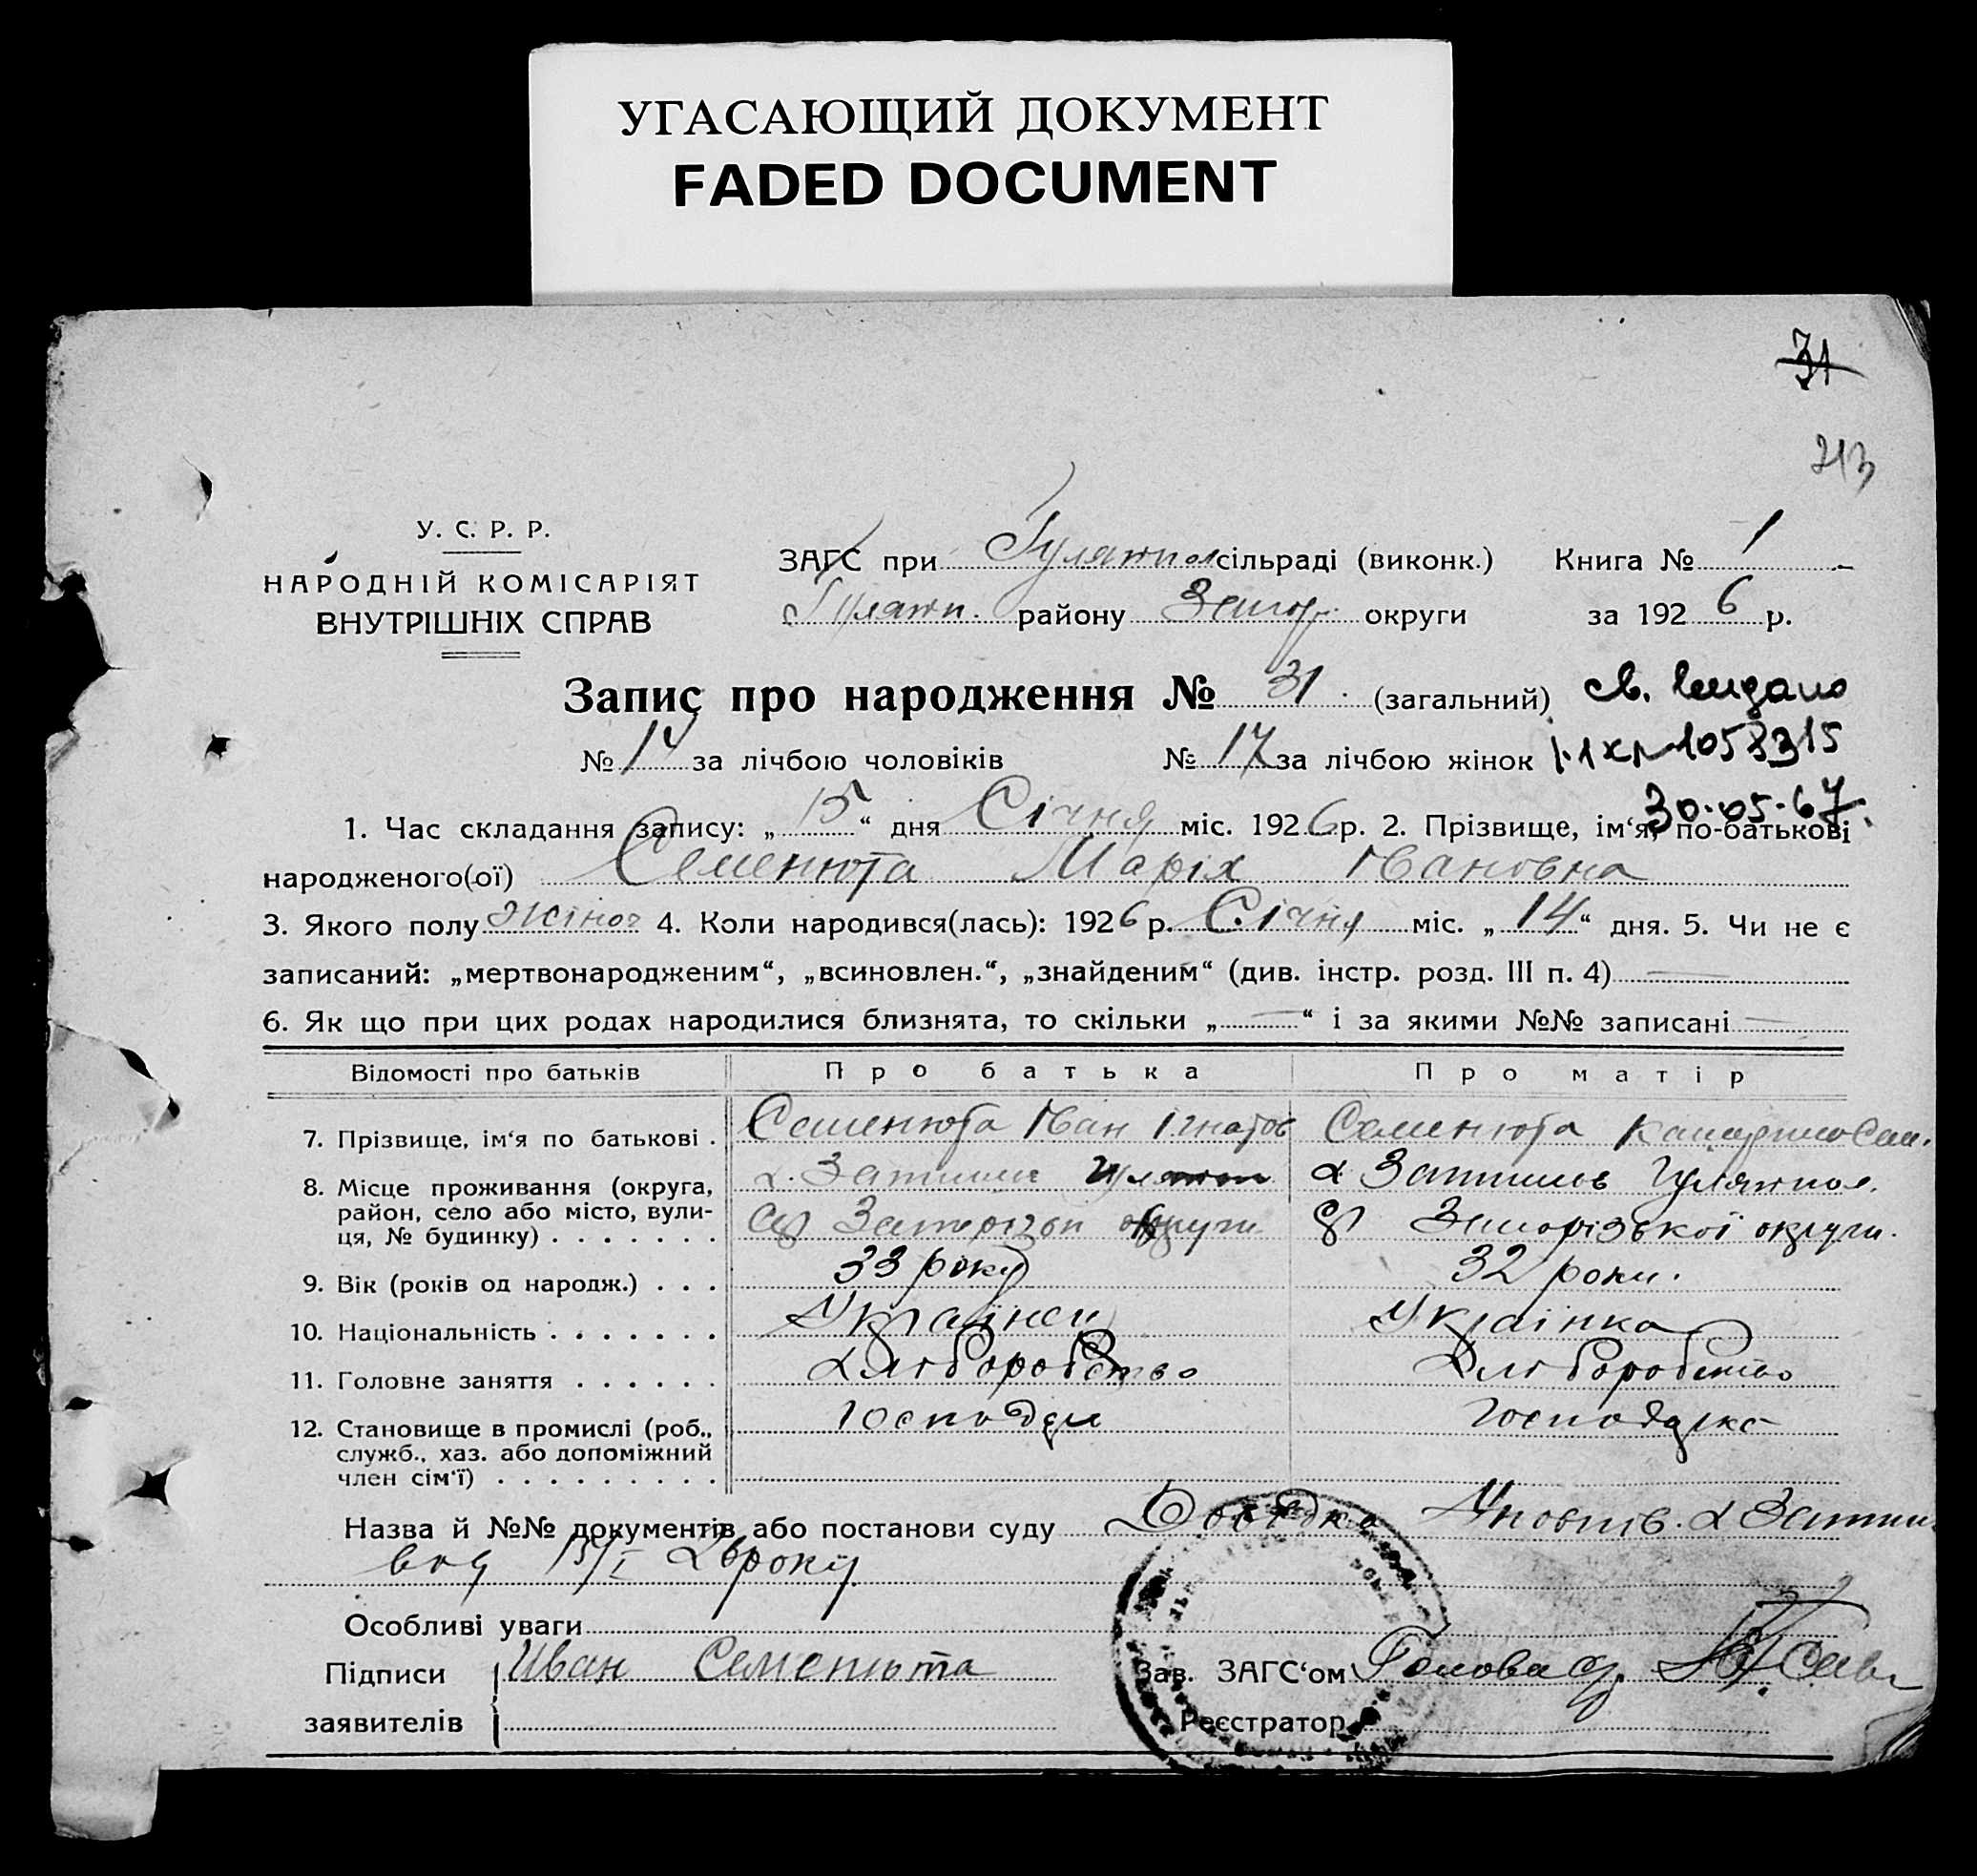 УГАСАЮЩИЙ ДОКУМЕНТ
FADED DOCUMENT
31
213
У. С. Р. Р.
НАРОДНІЙ КОМІСАРІЯТ
ВНУТРІШНІХ СПРАВ
ЗАГС при Гуляйпол сільраді (виконк.) Книга № 1
Гуляйп. району Запор. округи за 1926 р.
Запис про народження № 31 (загальний) св. видано
№ 14 за лічбою чоловіків № 17 за лічбою жінок
30.05.67.
1. Час складання запису: „15“ дня Січня міс. 1926 р. 2. Прізвище, ім‘я, по-батькові
народженого(ої) Семенюта Марія Івановна
3. Якого полу жіноч 4. Коли народився(лась): 1926 р. Січня міс. „14“ дня. 5. Чи не є
записаний: „мертвонародженим“, „всиновлен.“, „знайденим“ (див. інстр. розд. III п. 4) —
6. Як що при цих родах народилися близнята, то скільки „—“ і за якими №№ записані —
Відомості про батьків Про батька Про матір
7. Прізвище, ім‘я по батькові . Семенюта Іван Ігнатов Семенюта
8. Місце проживання (округа,
район, село або місто, вули-
ця, № будинку) . . . . . . .
Запорізької округи.
9. Вік (років од народж.) . . . 33 року 32 роки.
10. Національність . . . . . . . Українец Українка
11. Головне заняття . . . . . . Хліборобство Хліборобство
12. Становище в промислі (роб., Господар Господарка
служб., хаз. або допоміжний
член сім‘ї) . . . . . . . . .
Назва й №№ документів або постанови суду Довідка Уповнов.
від 15/I 26 року
Особливі уваги
Підписи Иван Семенюта Зав. ЗАГС‘ом Голова
заявителів Реєстратор